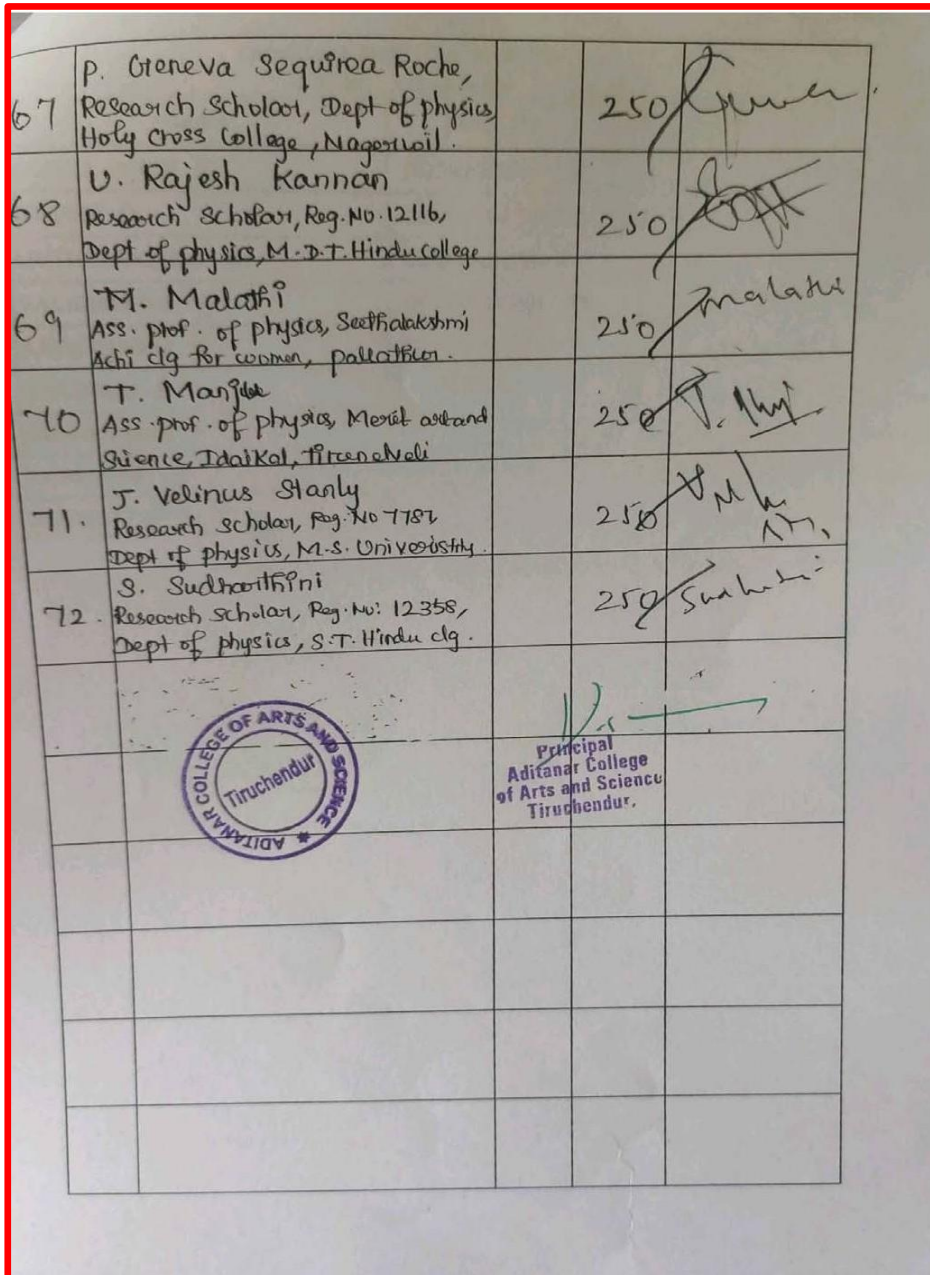 67
P. Geneva Sequirea Roche,
Research Scholar, Dept of physics,
Holy Cross College, Nagercoil.
250
68
U. Rajesh Kannan
Research Scholar, Reg. No. 12116,
Dept of physics, M.D.T. Hindu College
250
69
M. Malathi
Ass. prof. of physics, Seethalakshmi
Achi clg for women, pallathur.
250
malathi
70
T. Manju
Ass. prof. of physics, Merit art and
Science, Idaikal, Tirunelveli
250
71.
J. Velinus Stanly
Research scholar, Reg. No 7782
Dept of physics, M.S. University.
250
72.
S. Sudharthini
Research Scholar, Reg. No: 12358,
Dept of physics, S.T. Hindu clg.
250
ADITANAR COLLEGE OF ARTS AND SCIENCE
Tiruchendur
Principal
Aditanar College
of Arts and Science
Tiruchendur.